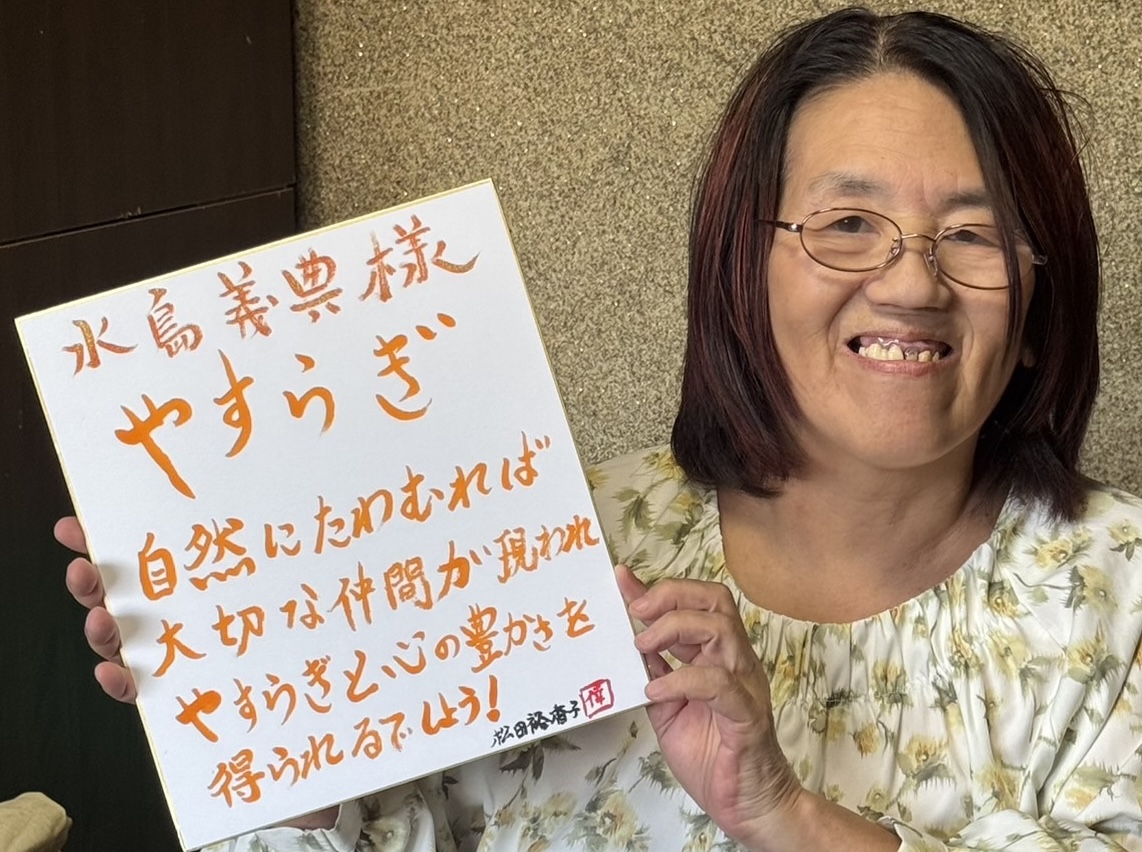 水島義典様
やすらぎ
自然にたわむれば
大切な仲間が現われ
やすらぎと心の豊かさを
得られるでしょう!